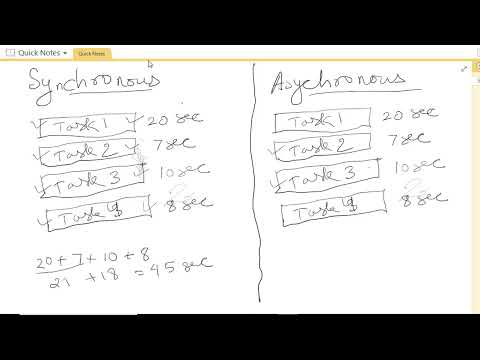 Quick Notes
Quick Notes
Synchronous
Task 1 20 sec
Task 2 7 sec
Task 3 10 sec
Task 4 8 sec
20 + 7 + 10 + 8
27 + 18 = 45 sec
Asychronous
Task 1 20 sec
Task 2 7 sec
Task 3 10 sec
Task 4 8 sec